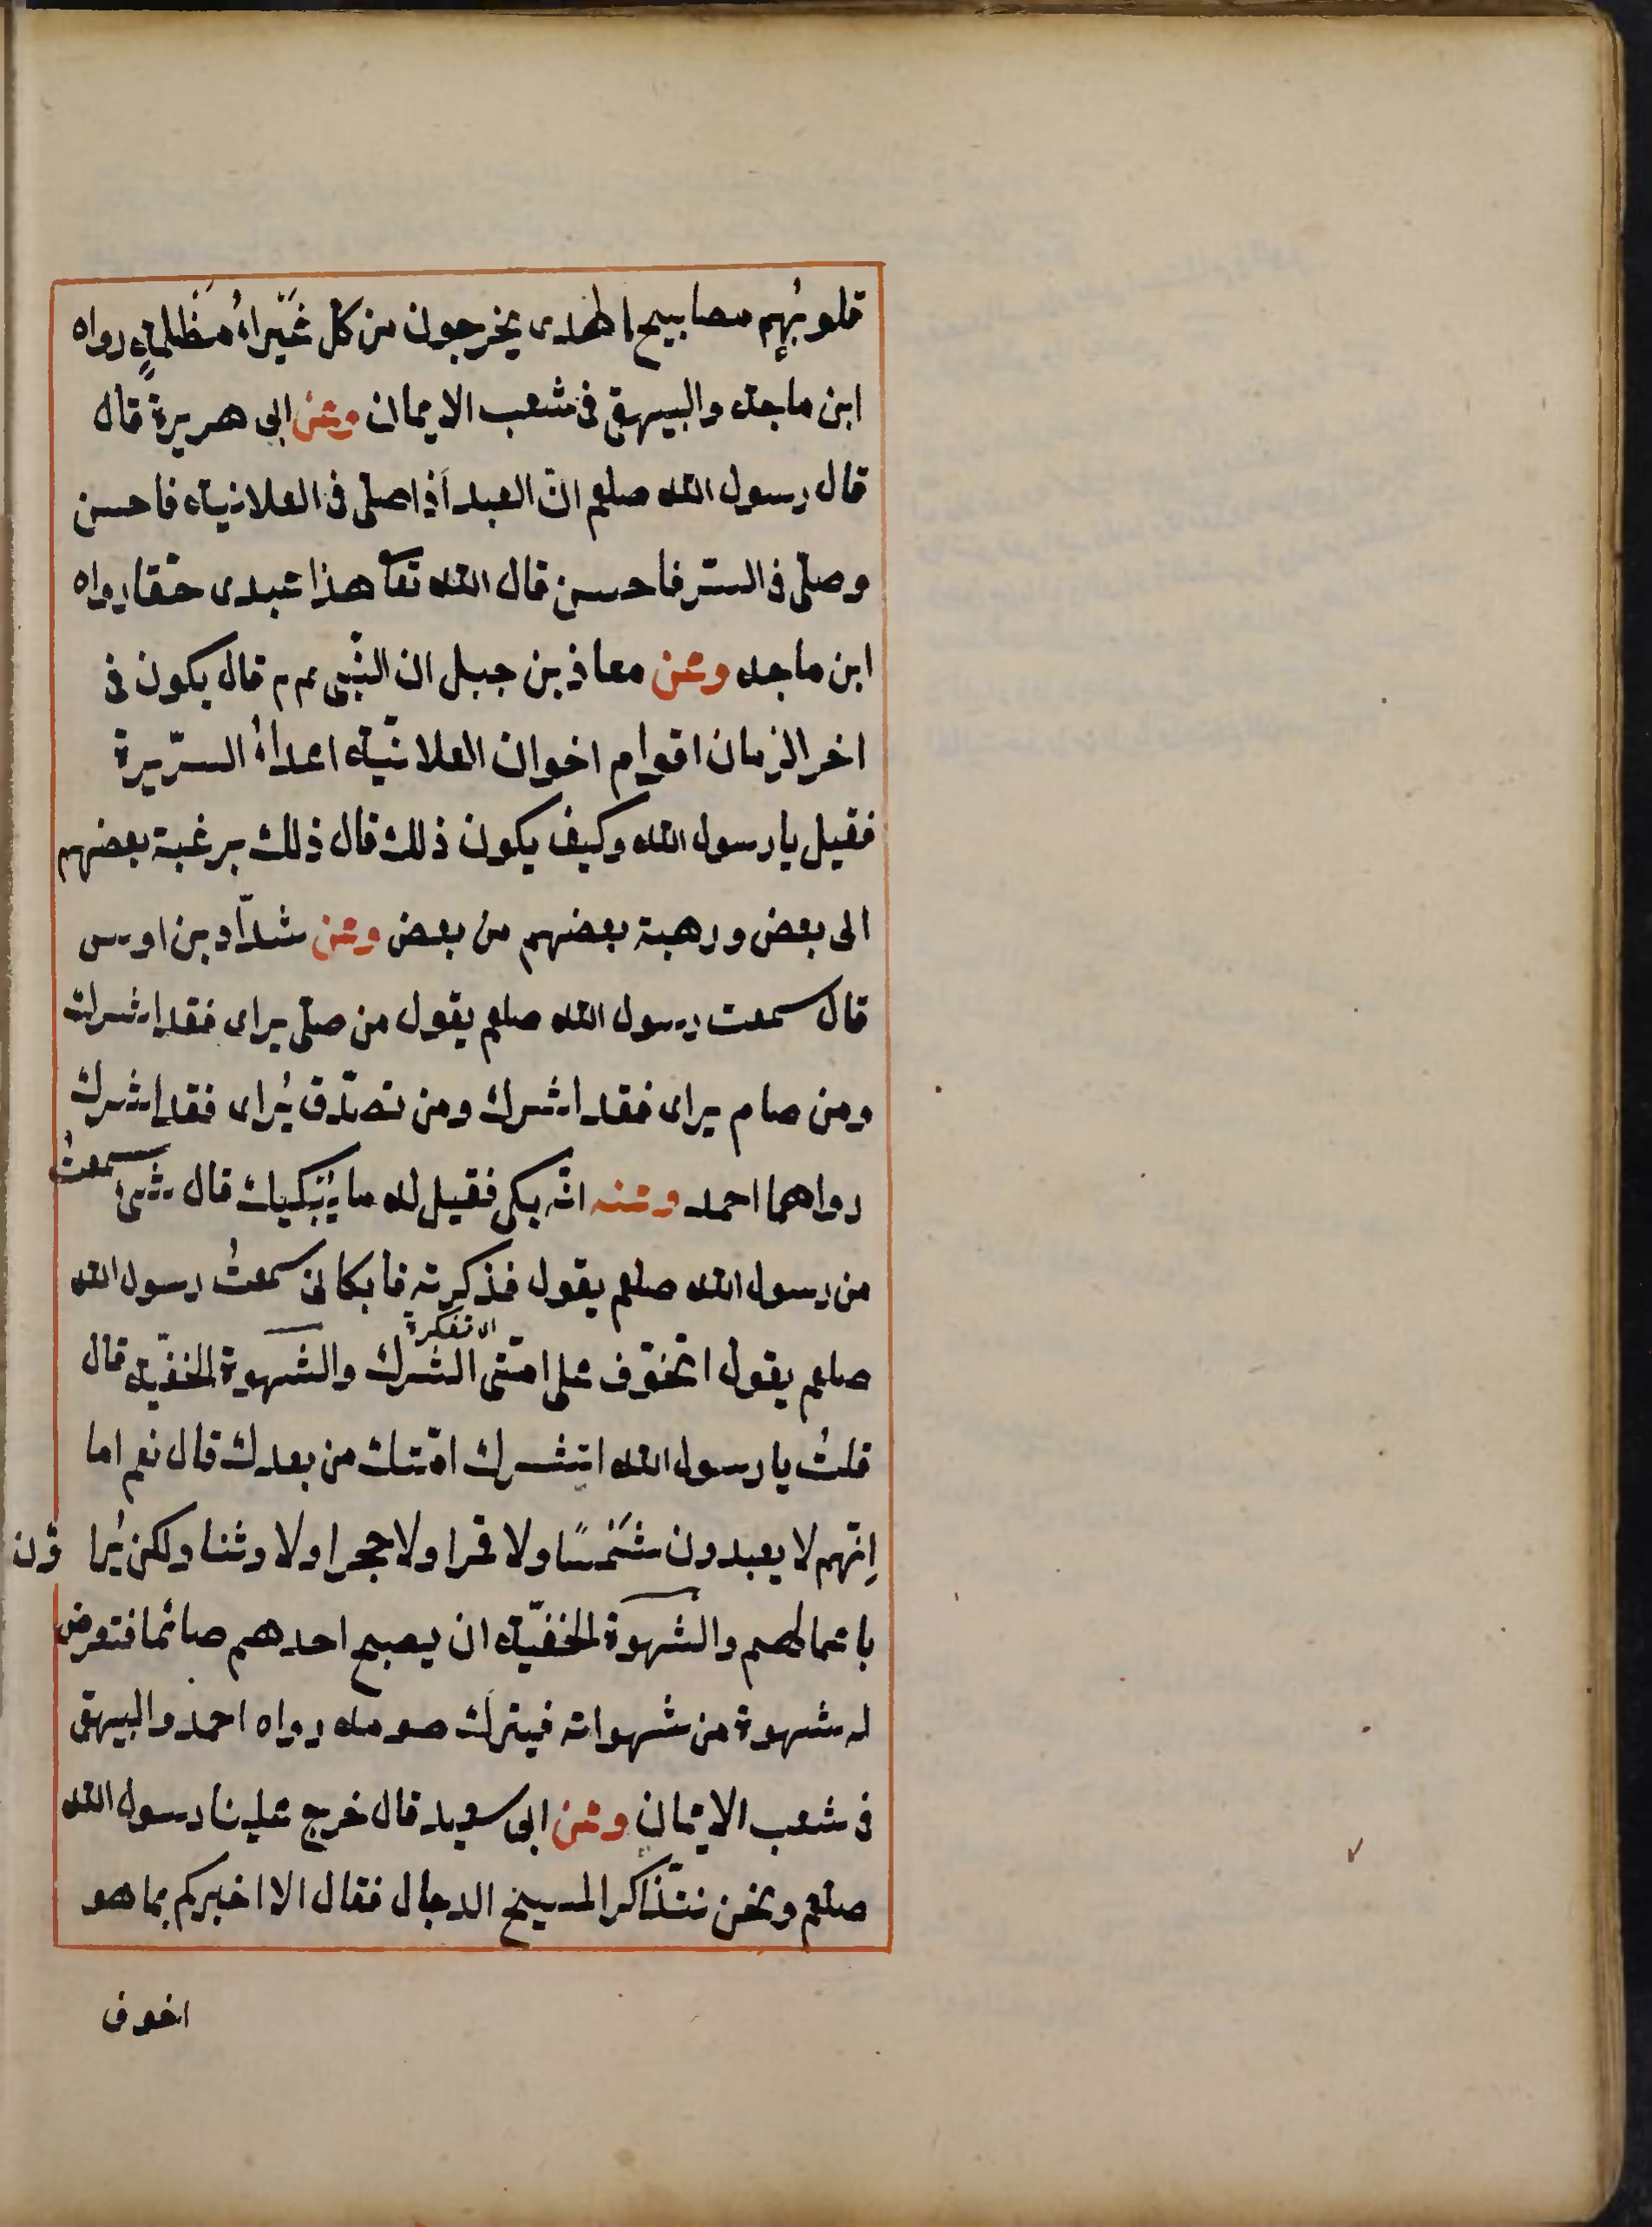 قلوبُهم مصابيح الهدى يخرجون من كل غَبْراءُ مظلمةٍ رواه
ابن ماجه والبيهقى فى شعب الايمان وعن ابى هريرة قال
قال رسول الله صلعم انّ العبد اذا صلى فى العلانية فاحسن
وصلّى فى السّر فاحسن قال الله تعا هذا عبدى حقا رواه
ابن ماجه وعن معاذ بن جبل ان النّبى عم م قال يكون فى
اخر الزمان اقوام اخوان العلانيّة اعداءُ السّريرة
فقيل يا رسول الله وكيف يكون ذلك قال ذلك برغبة بعضهم
الى بعض ورهبة بعضهم من بعض وعن شدّاد بن اوس
قال سمعت رسول الله صلعم يقول من صلّى يراى فقد اشرك
ومن صام يراى فقد اشرك ومن تصدّق يُراى فقد اشرك
رواهما احمد وعنه انّه بكى فقيل له ما يُبكيك قال شئ سمعتُ
من رسول الله صلعم يقول فذكرته فابكانى سمعتُ رسول الله
صلعم يقول اتخوّف على امّتى الشّرك والشّهوة الخفيّة قال
قلتُ يا رسول الله اتشرك امّتك من بعدك قال نعم اما
اِنّهم لا يعبدون شَمْسًا ولا قمرا ولا حجرا ولا وثنا ولكن يُراؤن
باعمالهم والشهوة الخفيّة ان يصبح احدهم صائما فتعرض
له شهوة من شهواته فيترك صومه رواه احمد والبيهقى
فى شعب الايمان وعن ابى سعيد قال خرج علينا رسول الله
صلعم ونحن نتذاكر المسيح الدجال فقال الا اخبركم بما هو
اخوف